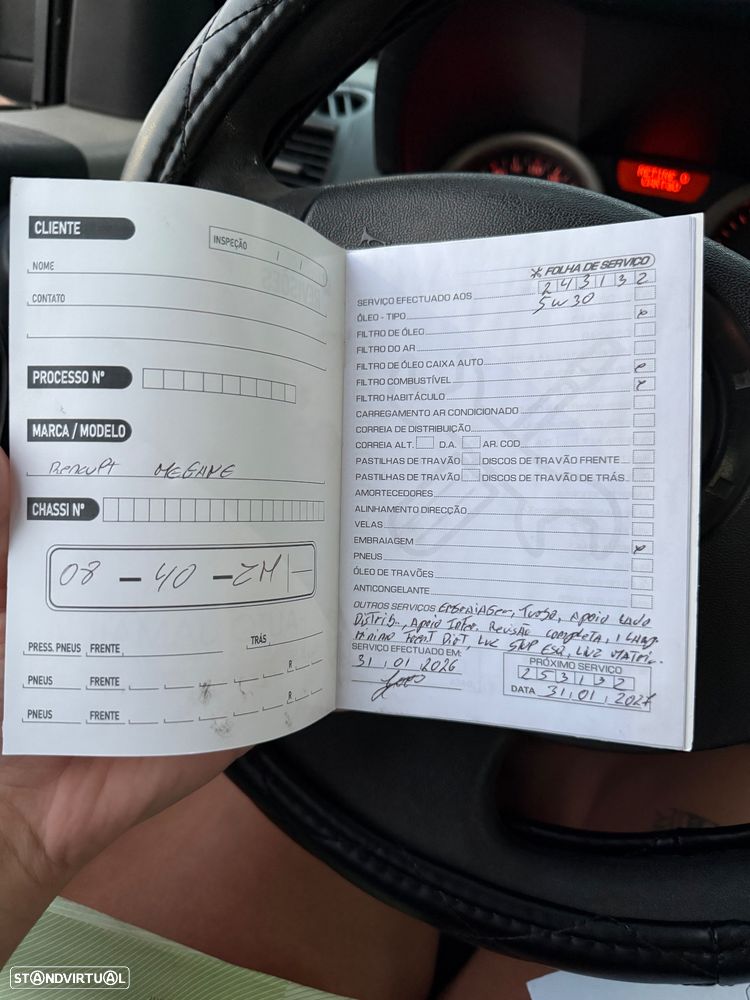 RETIRE O
CARTAO
CLIENTE
INSPEÇÃO
NOME
CONTATO
PROCESSO Nº
MARCA / MODELO
RENAULT MEGANE
CHASSI Nº
08 - 40 - ZM
PRESS. PNEUS FRENTE TRÁS
PNEUS FRENTE R
PNEUS FRENTE R
* FOLHA DE SERVIÇO
SERVIÇO EFECTUADO AOS 243132
ÓLEO - TIPO 5W30
FILTRO DE ÓLEO
FILTRO DO AR
FILTRO DE ÓLEO CAIXA AUTO
FILTRO COMBUSTÍVEL
FILTRO HABITÁCULO
CARREGAMENTO AR CONDICIONADO
CORREIA DE DISTRIBUIÇÃO
CORREIA ALT. D.A. AR. COD
PASTILHAS DE TRAVÃO DISCOS DE TRAVÃO FRENTE
PASTILHAS DE TRAVÃO DISCOS DE TRAVÃO DE TRÁS
AMORTECEDORES
ALINHAMENTO DIRECÇÃO
VELAS
EMBRAIAGEM
PNEUS
ÓLEO DE TRAVÕES
ANTICONGELANTE
OUTROS SERVIÇOS EMBRAIAGEM, TURBO, APOIO LADO
DISTRIB., APOIO INFER. REVISÃO COMPLETA, 1
MINIMO FRENT DIRT, LUZ ESQ, LUZ MATRIC.
SERVIÇO EFECTUADO EM:
31.01.2026
PRÓXIMO SERVIÇO
253132
DATA 31.01.2027
STANDVIRTUAL